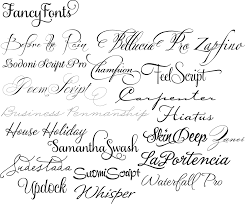 FancyFonts
Before the Rain
Bellucia Pro Zapfino
Bodoni Script Pro
Champion
Feel Script
Poem Script
Carpenter
Business Penmanship
Hiatus
House Holiday
Skin Deep
Samantha Swash
La Portencia
Sudestada
Suomi Script
Updock
Whisper
Waterfall Pro